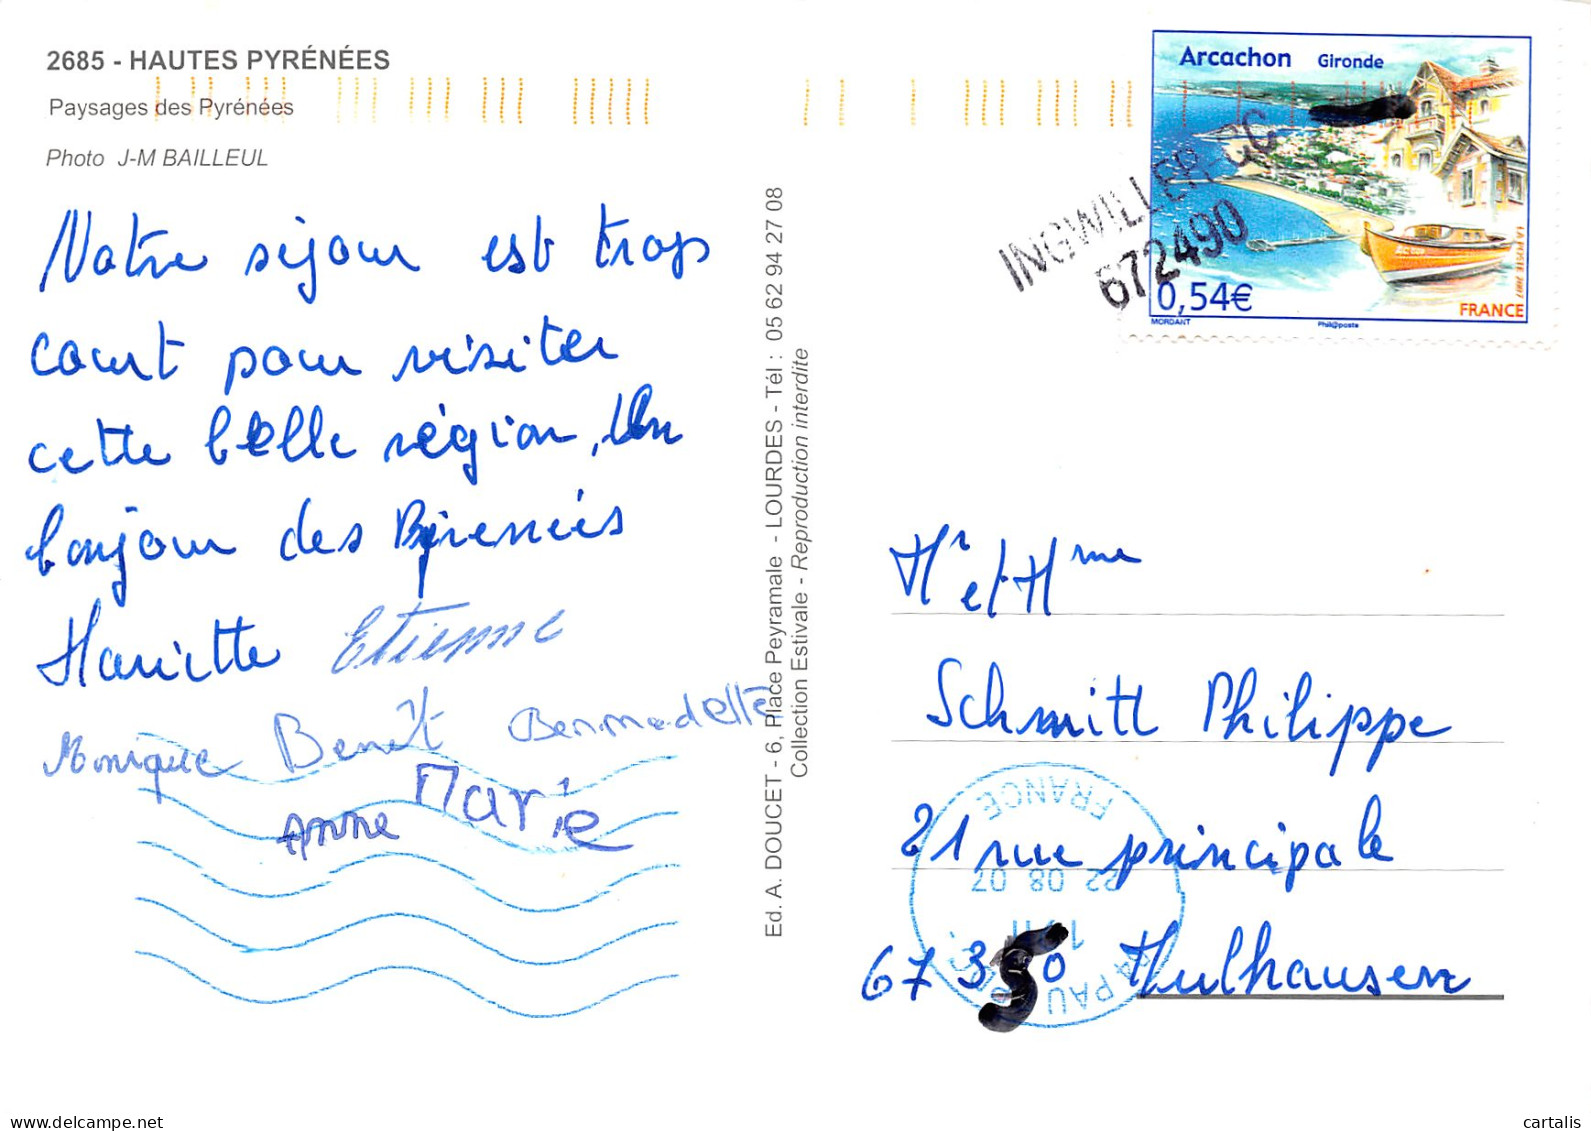 2685 - HAUTES PYRÉNÉES
Paysages des Pyrénées
Photo J-M BAILLEUL
Notre séjour est trop
court pour visiter
cette belle région, Un
bonjour des Pyrenées
Mariette Etienne
Monique Benoît Bernadette
Anne Marie
Ed. A. DOUCET - 6, Place Peyramale - LOURDES - Tél : 05 62 94 27 08
Collection Estivale - Reproduction interdite
Arcachon Gironde
0,54€
FRANCE
MORDANT
Phil@poste
LA POSTE 2007
INGWILLER CC
672490
Mr et Mme
Schmitt Philippe
21 rue principale
67350 Mulhausen
FRANCE
22 08 07
64 PAU
delcampe.net
cartalis